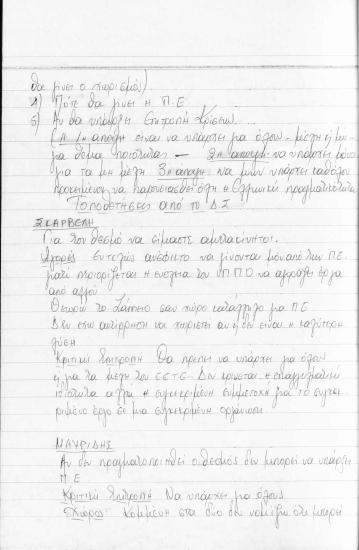 θα γίνει ο χωρισμός).
4) Πότε θα γίνει η Π.Ε
5) Αν θα υπάρξει Επιτροπή Κρίσεως
(Α 1η άποψη είναι να υπάρχει για όλους - μέλη ή μη -
για θέμα ποιότητας - 2η άποψη να υπάρχει μόνο
για τα μη μέλη 3η άποψη: να μην υπάρχει καθόλου
προκειμένου να παρουσιασθεί όλη η Ελληνική πραγματικότητα
Τοποθετήσεις από το Δ.Σ
ΣΚΑΡΒΕΛΗ
Για τον θεσμό να είμαστε αμετακίνητοι.
Αγορές Εντελώς ανέφικτο να γίνονται μόνο από των Π.Ε.
γιατί περιορίζεται η ευχέρεια του ΥΠ.ΠΟ να αγοράζει έργα
από αλλού.
Θεωρώ το Ζάππειο σαν χώρο κατάλληλο για Π.Ε
Δεν έχω αντίρρηση να χωριστεί αν κ' δεν είναι η καλύτερη
λύση
Κριτική Επιτροπή Θα πρέπει να υπάρχει για όλους
ή για τα μέλη του ΕΕΤΕ. Δεν κρίνεται η επαγγελματική
ιδιότητα αλλά η συγκεκριμένη συμμετοχή για το συγκεκ
ριμένο έργο σε μια συγκεκριμένη οργάνωση
ΜΑΥΡΙΔΗΣ
Αν δεν πραγματοποιηθεί ο θεσμός δεν μπορεί να υπάρξει
Π.Ε
Κριτική Επιτροπή Να υπάρχει για όλους
Χώρος: Κομμένη στα δυο δεν νομίζω ότι μπορεί